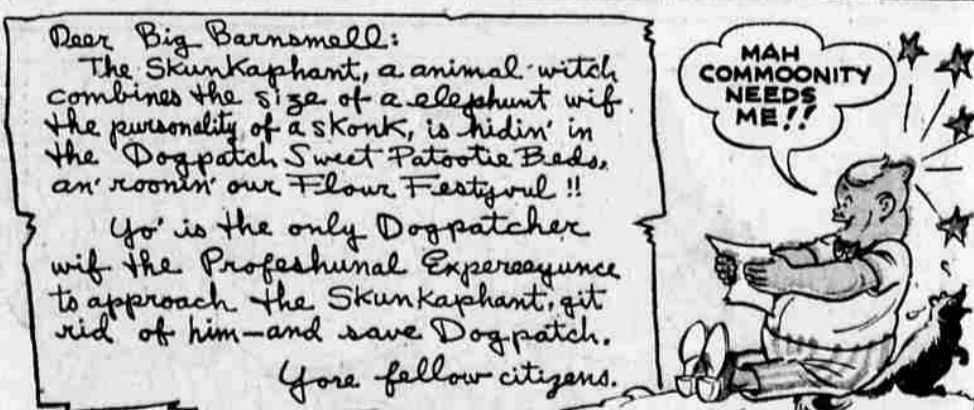 Deer Big Barnsmell:
The Skunkaphant, a animal witch
combines the size of a elephunt wif
the pursonality of a skonk, is hidin' in
the Dogpatch Sweet Patootie Beds,
an' roonin' our Flour Festyvul!!
Yo' is the only Dogpatcher
wif the Profeshunal Expereeyunce
to approach the Skunkaphant, git
rid of him—and save Dogpatch.
Yore fellow citizens.
MAH
COMMOONITY
NEEDS
ME!!